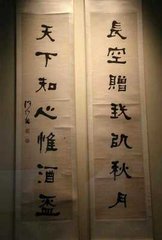 長空贈我以秋月
天下知心惟酒盃